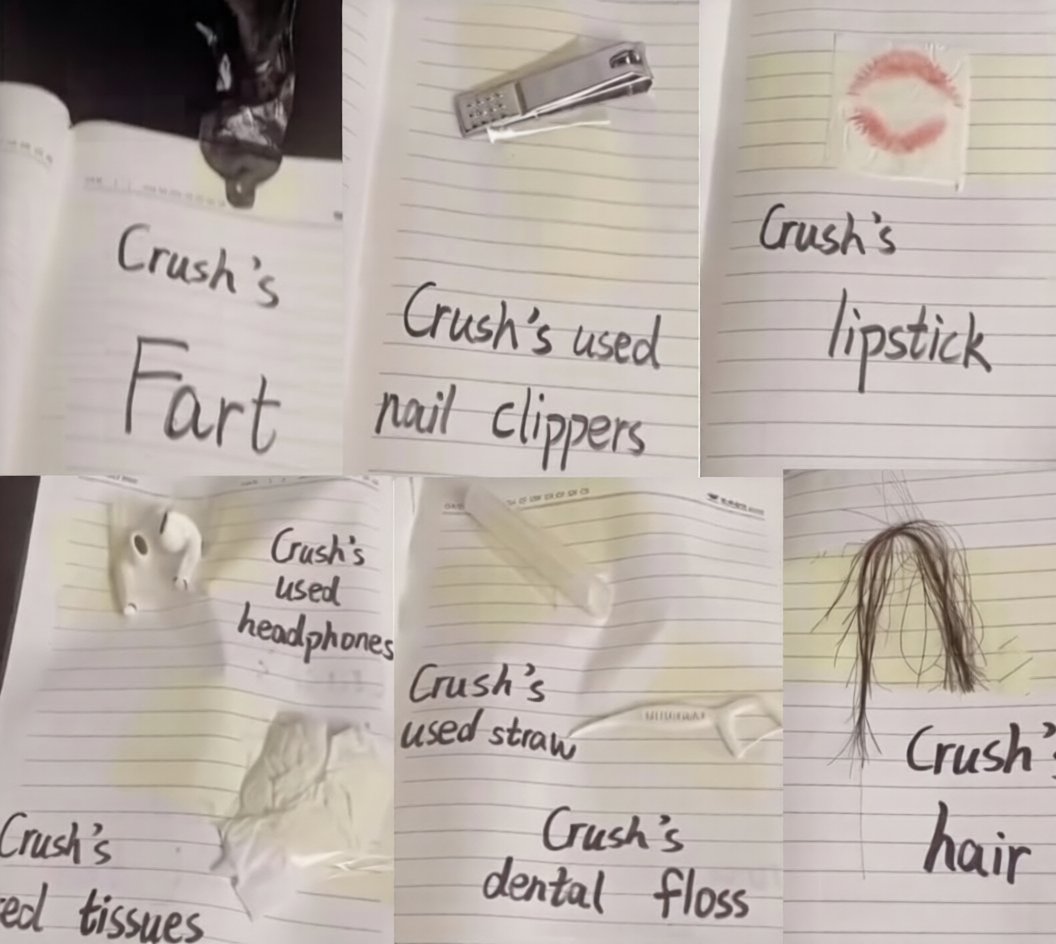 Crush's
Fart
Crush's used
nail clippers
Crush's
lipstick
Crush's
used
headphones
Crush's
ed tissues
Crush's
used straw
Crush's
dental floss
Crush's
hair